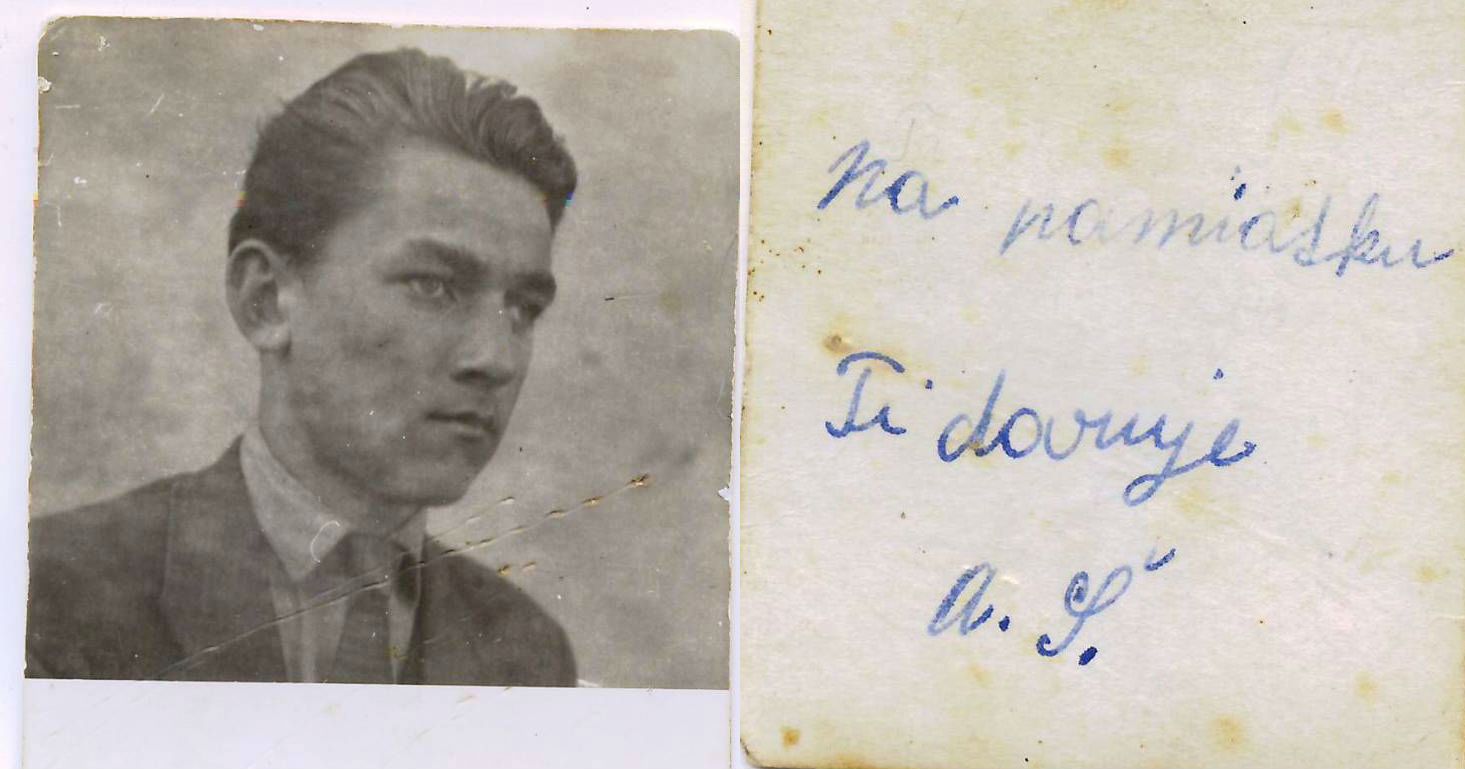 Na pamiatku
Ti daruje
A. Š.